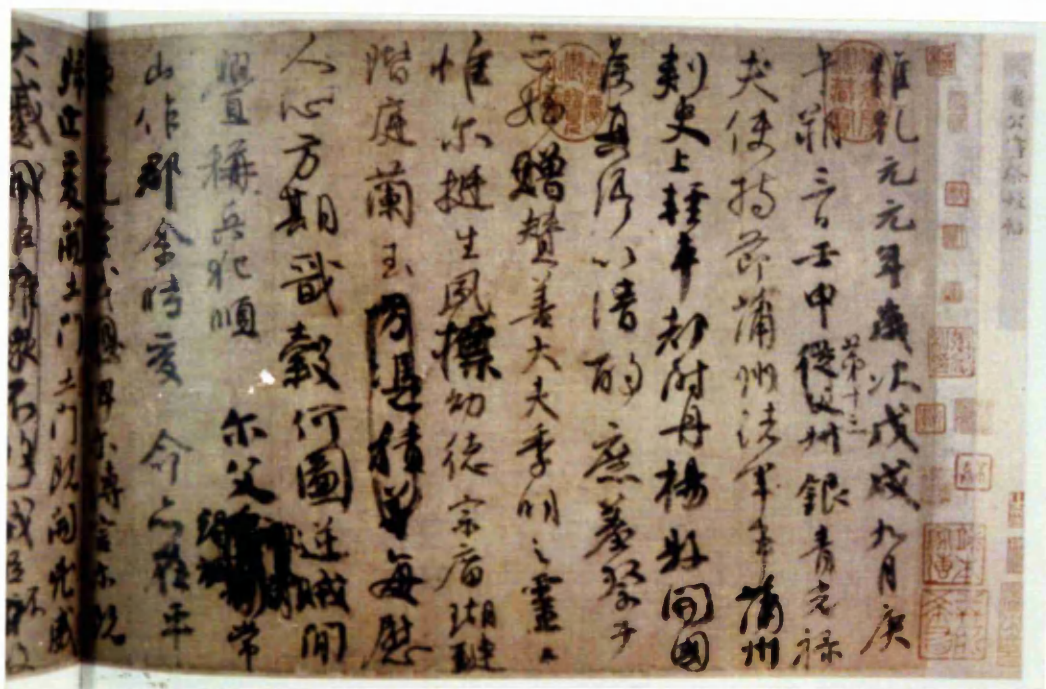 魯公書祭姪帖
維乾元元年歲次戊戌九月庚
午朔三日壬申第十三從父銀青光祿
夫使持節蒲州諸軍事蒲州
刺史上輕車都尉丹楊縣開國
侯真卿以清酌庶羞祭于
亡姪贈贊善大夫季明之靈曰
惟尓挺生夙標幼德宗廟瑚璉
階庭蘭玉方憑積善每慰
人心方期戩穀何圖逆賊閒
釁稱兵犯順尓父常
山作郡余時受命亦在平
仁兄愛我俾尓傳言尓既
歸止爰開土門土門既開凶威
大蹙賊臣擁衆不救